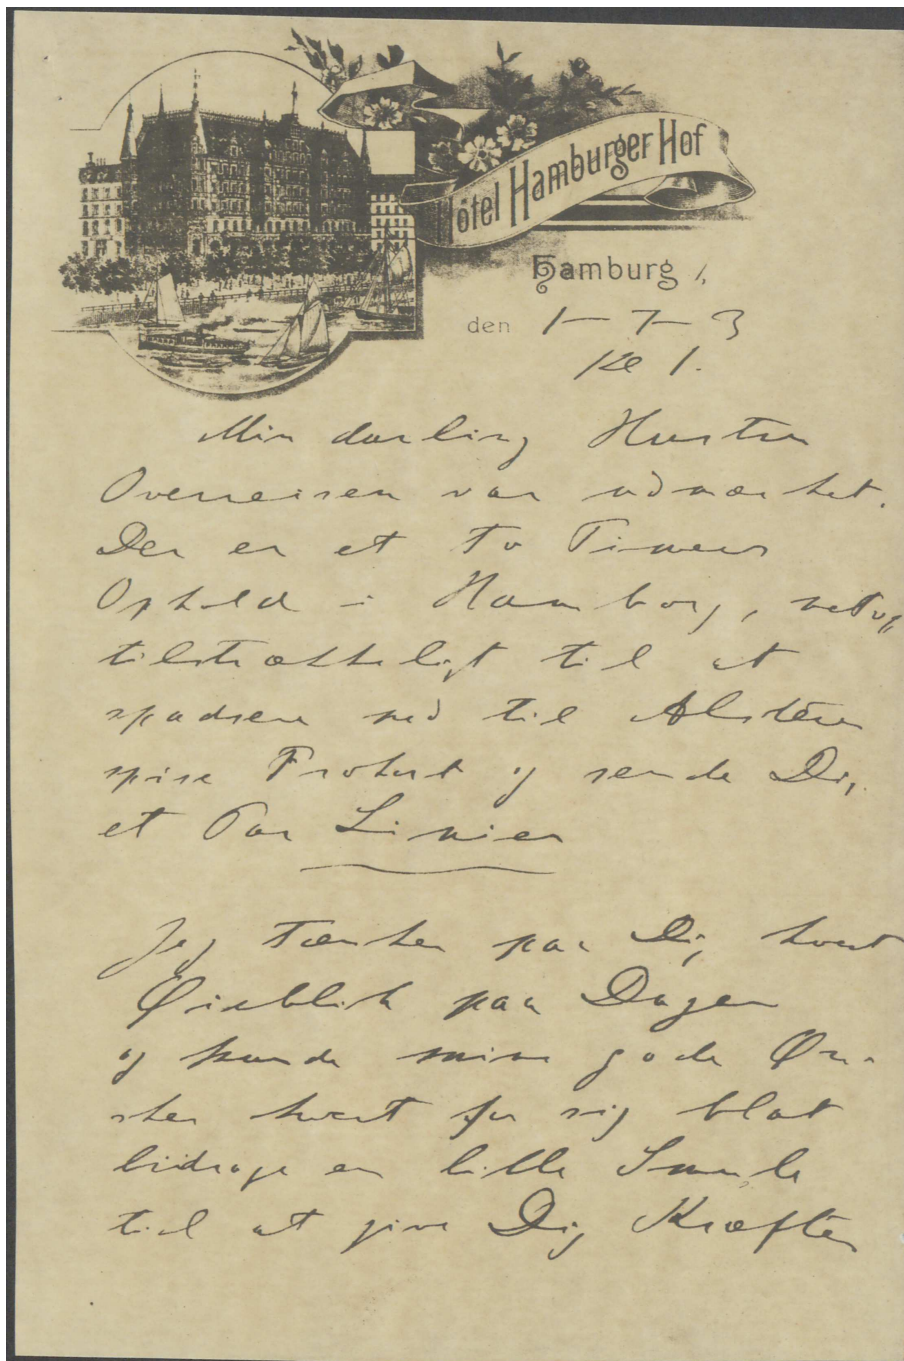 Hôtel Hamburger Hof
Hamburg
den 1-7-3
Kl 1.
Min darling Hustru
Overreisen var udmærket.
Der er et To Timers
Ophold i Hamborg, netop
tilstrækkeligt til at
spadsere ned til Alsteren
spise Frokost og sende Dig
et Par Linier
Jeg Tænker paa Dig hvert
Øieblik paa Dagen
og kunde mine gode Øn-
sker hvert for sig blot
bidrage en lille Smule
til at give Dig Kræfter